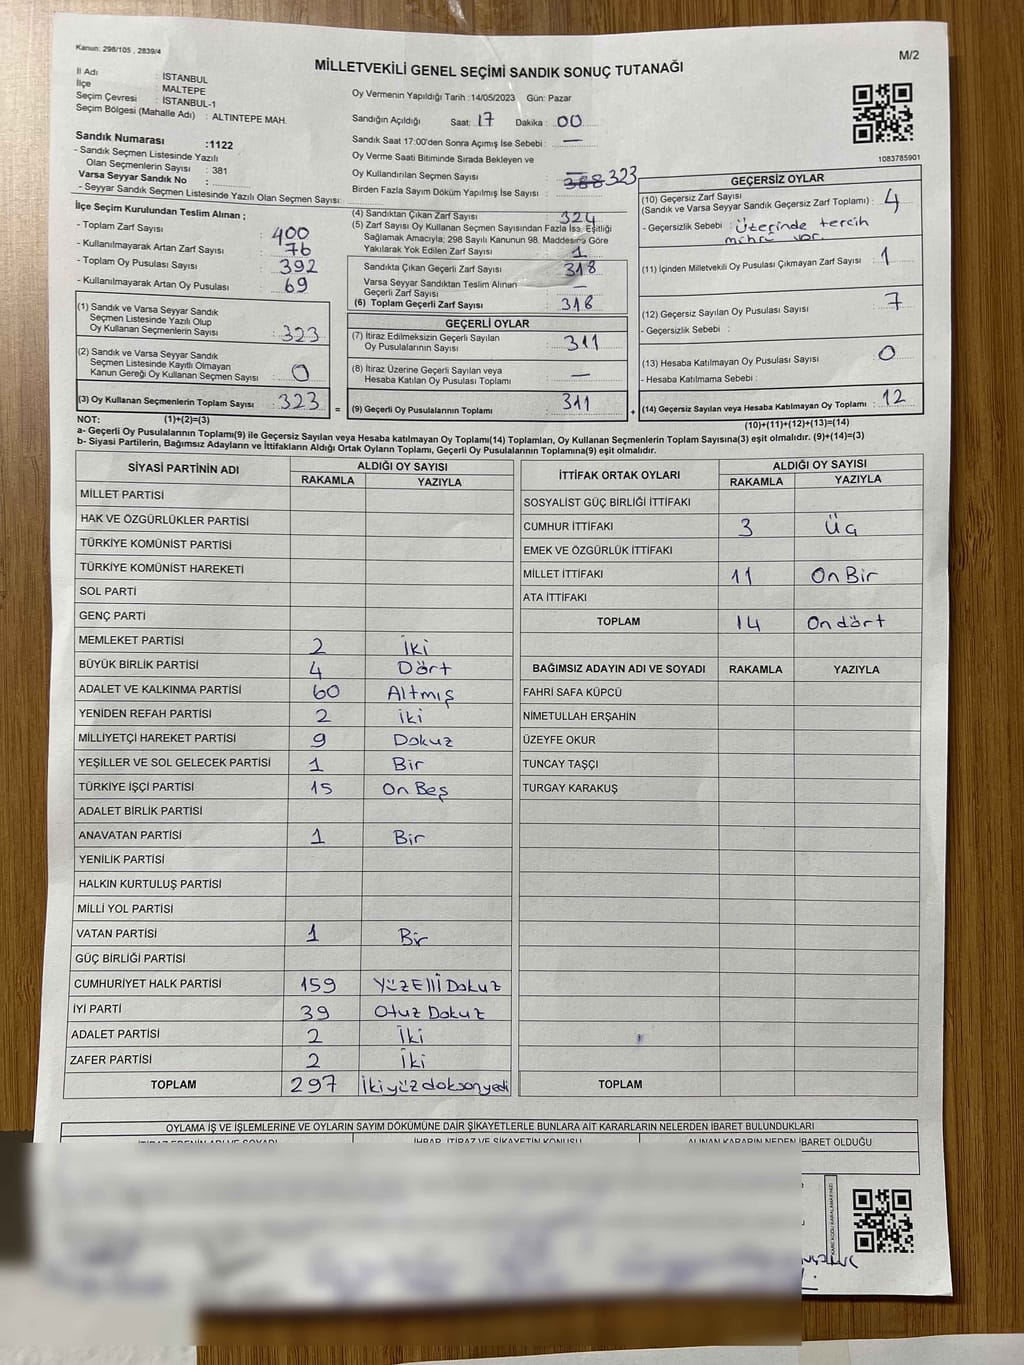 Kanun: 298/105 , 2839/4
M/2
MİLLETVEKİLİ GENEL SEÇİMİ SANDIK SONUÇ TUTANAĞI
İl Adı : İSTANBUL
İlçe : MALTEPE
Seçim Çevresi : İSTANBUL-1
Seçim Bölgesi (Mahalle Adı) : ALTINTEPE MAH.
Sandık Numarası :1122
- Sandık Seçmen Listesinde Yazılı
Olan Seçmenlerin Sayısı : 381
Varsa Seyyar Sandık No :
- Seyyar Sandık Seçmen Listesinde Yazılı Olan Seçmen Sayısı:
Oy Vermenin Yapıldığı Tarih :14/05/2023 Gün: Pazar
Sandığın Açıldığı Saat: 17 Dakika : 00
Sandık Saat 17:00'den Sonra Açımış İse Sebebi : —
Oy Verme Saati Bitiminde Sırada Bekleyen ve
Oy Kullandırılan Seçmen Sayısı : —
Birden Fazla Sayım Döküm Yapılmış İse Sayısı : 323
1083785901
İlçe Seçim Kurulundan Teslim Alınan ;
- Toplam Zarf Sayısı : 400
- Kullanılmayarak Artan Zarf Sayısı : 76
- Toplam Oy Pusulası Sayısı : 392
- Kullanılmayarak Artan Oy Pusulası : 69
(1) Sandık ve Varsa Seyyar Sandık
Seçmen Listesinde Yazılı Olup
Oy Kullanan Seçmenlerin Sayısı : 323
(2) Sandık ve Varsa Seyyar Sandık
Seçmen Listesinde Kayıtlı Olmayan
Kanun Gereği Oy Kullanan Seçmen Sayısı : 0
(3) Oy Kullanan Seçmenlerin Toplam Sayısı : 323
(4) Sandıktan Çıkan Zarf Sayısı : 324
(5) Zarf Sayısı Oy Kullanan Seçmen Sayısından Fazla İse, Eşitliği
Sağlamak Amacıyla; 298 Sayılı Kanunun 98. Maddesine Göre
Yakılarak Yok Edilen Zarf Sayısı : 1
Sandıkta Çıkan Geçerli Zarf Sayısı : 318
Varsa Seyyar Sandıktan Teslim Alınan
Geçerli Zarf Sayısı : —
(6) Toplam Geçerli Zarf Sayısı : 318
GEÇERLİ OYLAR
(7) İtiraz Edilmeksizin Geçerli Sayılan
Oy Pusulalarının Sayısı : 311
(8) İtiraz Üzerine Geçerli Sayılan veya
Hesaba Katılan Oy Pusulası Toplamı : —
= (9) Geçerli Oy Pusulalarının Toplamı : 311
GEÇERSİZ OYLAR
(10) Geçersiz Zarf Sayısı
(Sandık ve Varsa Seyyar Sandık Geçersiz Zarf Toplamı) : 4
- Geçersizlik Sebebi : Üzerinde tercih
mührü var.
(11) İçinden Milletvekili Oy Pusulası Çıkmayan Zarf Sayısı : 1
(12) Geçersiz Sayılan Oy Pusulası Sayısı : 7
- Geçersizlik Sebebi :
(13) Hesaba Katılmayan Oy Pusulası Sayısı : 0
- Hesaba Katılmama Sebebi :
+ (14) Geçersiz Sayılan veya Hesaba Katılmayan Oy Pusulası Toplamı : 12
NOT: (1)+(2)=(3)
(10)+(11)+(12)+(13)=(14)
a- Geçerli Oy Pusulalarının Toplamı(9) ile Geçersiz Sayılan veya Hesaba katılmayan Oy Toplamı(14) Toplamları, Oy Kullanan Seçmenlerin Toplam Sayısına(3) eşit olmalıdır. (9)+(14)=(3)
b- Siyasi Partilerin, Bağımsız Adayların ve İttifakların Aldığı Ortak Oyların Toplamı, Geçerli Oy Pusulalarının Toplamına(9) eşit olmalıdır.
SİYASİ PARTİNİN ADI ALDIĞI OY SAYISI
RAKAMLA YAZIYLA
MİLLET PARTİSİ
HAK VE ÖZGÜRLÜKLER PARTİSİ
TÜRKİYE KOMÜNİST PARTİSİ
TÜRKİYE KOMÜNİST HAREKETİ
SOL PARTİ
GENÇ PARTİ
MEMLEKET PARTİSİ 2 İki
BÜYÜK BİRLİK PARTİSİ 4 Dört
ADALET VE KALKINMA PARTİSİ 60 Altmış
YENİDEN REFAH PARTİSİ 2 iki
MİLLİYETÇİ HAREKET PARTİSİ 9 Dokuz
YEŞİLLER VE SOL GELECEK PARTİSİ 1 Bir
TÜRKİYE İŞÇİ PARTİSİ 15 On Beş
ADALET BİRLİK PARTİSİ
ANAVATAN PARTİSİ 1 Bir
YENİLİK PARTİSİ
HALKIN KURTULUŞ PARTİSİ
MİLLİ YOL PARTİSİ
VATAN PARTİSİ 1 Bir
GÜÇ BİRLİĞİ PARTİSİ
CUMHURİYET HALK PARTİSİ 159 YüzElliDokuz
İYİ PARTİ 39 Otuz Dokuz
ADALET PARTİSİ 2 İki
ZAFER PARTİSİ 2 İki
TOPLAM 297 İkiyüzdoksanyedi
İTTİFAK ORTAK OYLARI ALDIĞI OY SAYISI
RAKAMLA YAZIYLA
SOSYALİST GÜÇ BİRLİĞİ İTTİFAKI
CUMHUR İTTİFAKI 3 Üç
EMEK VE ÖZGÜRLÜK İTTİFAKI
MİLLET İTTİFAKI 11 On Bir
ATA İTTİFAKI
TOPLAM 14 On dört
BAĞIMSIZ ADAYIN ADI VE SOYADI RAKAMLA YAZIYLA
FAHRİ SAFA KÜPCÜ
NİMETULLAH ERŞAHİN
ÜZEYFE OKUR
TUNCAY TAŞÇI
TURGAY KARAKUŞ
TOPLAM
OYLAMA İŞ VE İŞLEMLERİNE VE OYLARIN SAYIM DÖKÜMÜNE DAİR ŞİKAYETLERLE BUNLARA AİT KARARLARIN NELERDEN İBARET BULUNDUKLARI
İTİRAZ EDENİN ADI VE SOYADI İHBAR, İTİRAZ VE ŞİKAYETİN KONUSU ALINAN KARARIN NEDEN İBARET OLDUĞU